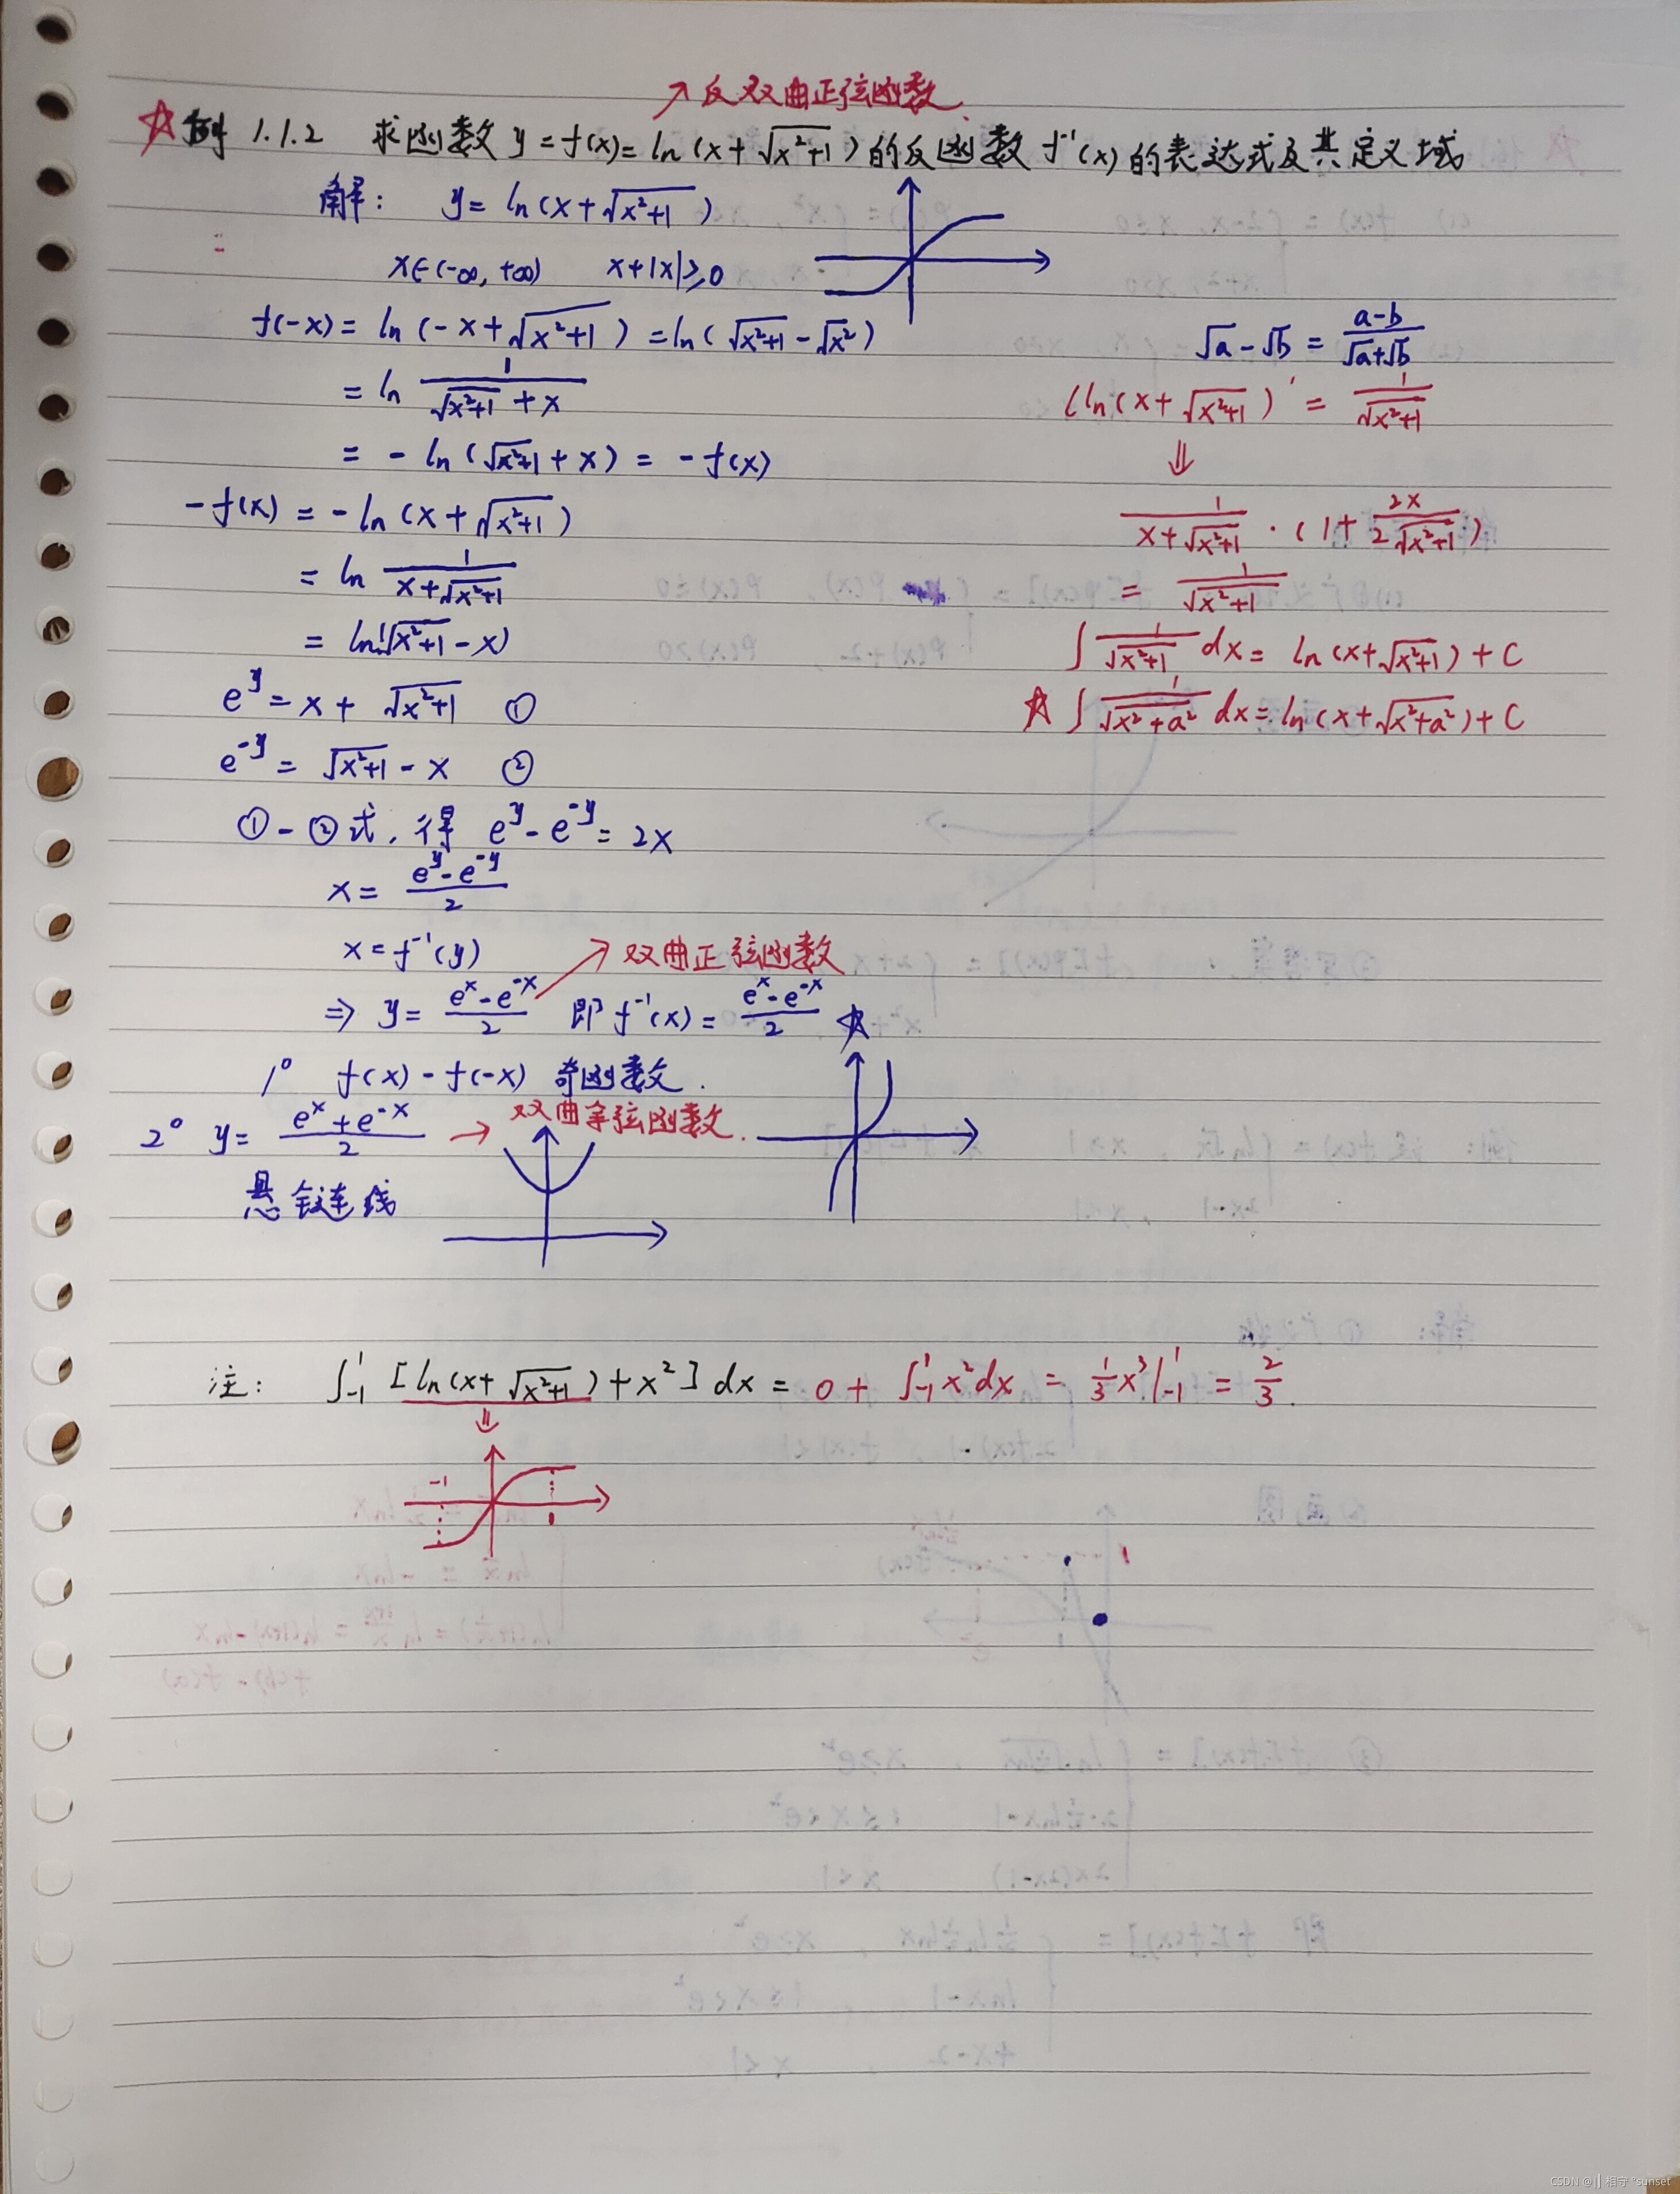 →反双曲正弦函数.
☆例 1.1.2 求函数 y = f(x) = ln(x+√(x²+1)) 的反函数 f⁻¹(x) 的表达式及其定义域
解: y = ln(x+√(x²+1))
x∈(-∞, +∞) x+|x|≥0
f(-x) = ln(-x+√(x²+1)) = ln(√(x²+1) - √x²)
= ln 1/(√(x²+1) + x)
= - ln(√(x²+1) + x) = - f(x)
- f(x) = - ln(x+√(x²+1))
= ln 1/(x+√(x²+1))
= ln(√(x²+1) - x)
e^y = x + √(x²+1) ①
e^-y = √(x²+1) - x ②
① - ②式, 得 e^y - e^-y = 2x
x = (e^y - e^-y)/2
x = f⁻¹(y)
→双曲正弦函数
⇒ y = (e^x - e^-x)/2 即 f⁻¹(x) = (e^x - e^-x)/2 ☆
1° f(x) - f(-x) 奇函数.
2° y = (e^x + e^-x)/2 → 双曲余弦函数.
悬链线
√a - √b = (a-b)/(√a+√b)
(ln(x+√(x²+1))' = 1/√(x²+1)
⇓
1/(x+√(x²+1)) · (1 + 2x/(2√(x²+1)))
= 1/√(x²+1)
∫ 1/√(x²+1) dx = ln(x+√(x²+1)) + C
☆ ∫ 1/√(x²+a²) dx = ln(x+√(x²+a²)) + C
注: ∫₋₁¹ [ln(x+√(x²+1)) + x²] dx = 0 + ∫₋₁¹ x²dx = 1/3 x³|₋₁¹ = 2/3.
⇓
-1
CSDN @|| 相守 °sunset